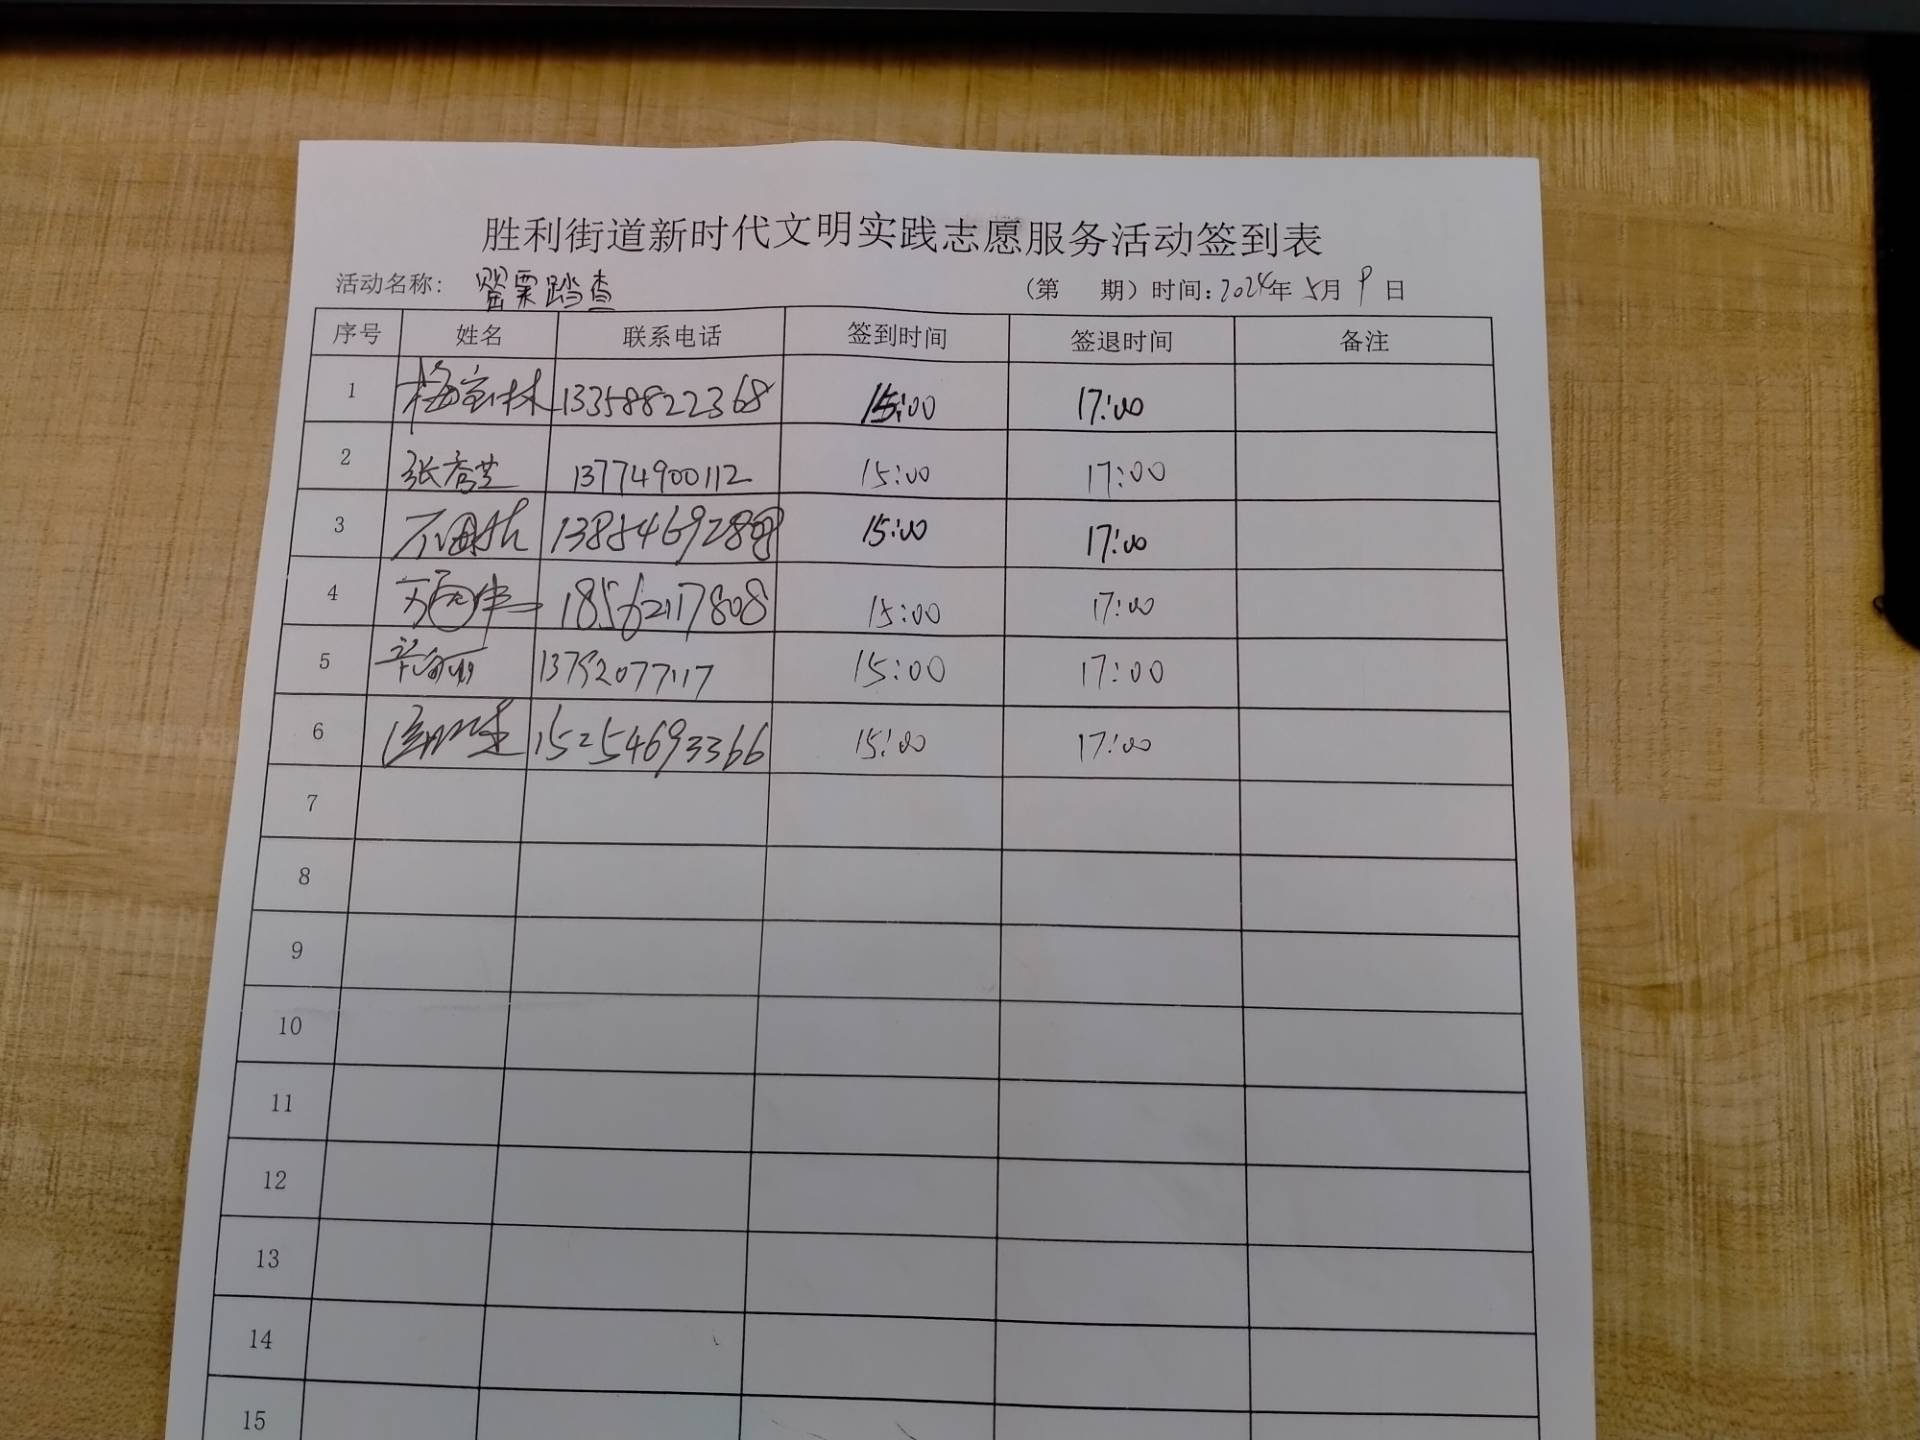 胜利街道新时代文明实践志愿服务活动签到表
活动名称: 罂粟踏查 (第 期) 时间: 2024年 5月 9 日
序号 姓名 联系电话 签到时间 签退时间 备注
1 梅宝林 13358822368 15:00 17:00
2 张秀芝 13774900112 15:00 17:00
3 15:00 17:00
4 18562117808 15:00 17:00
5 13792077117 15:00 17:00
6 15254693366 15:00 17:00
7
8
9
10
11
12
13
14
15